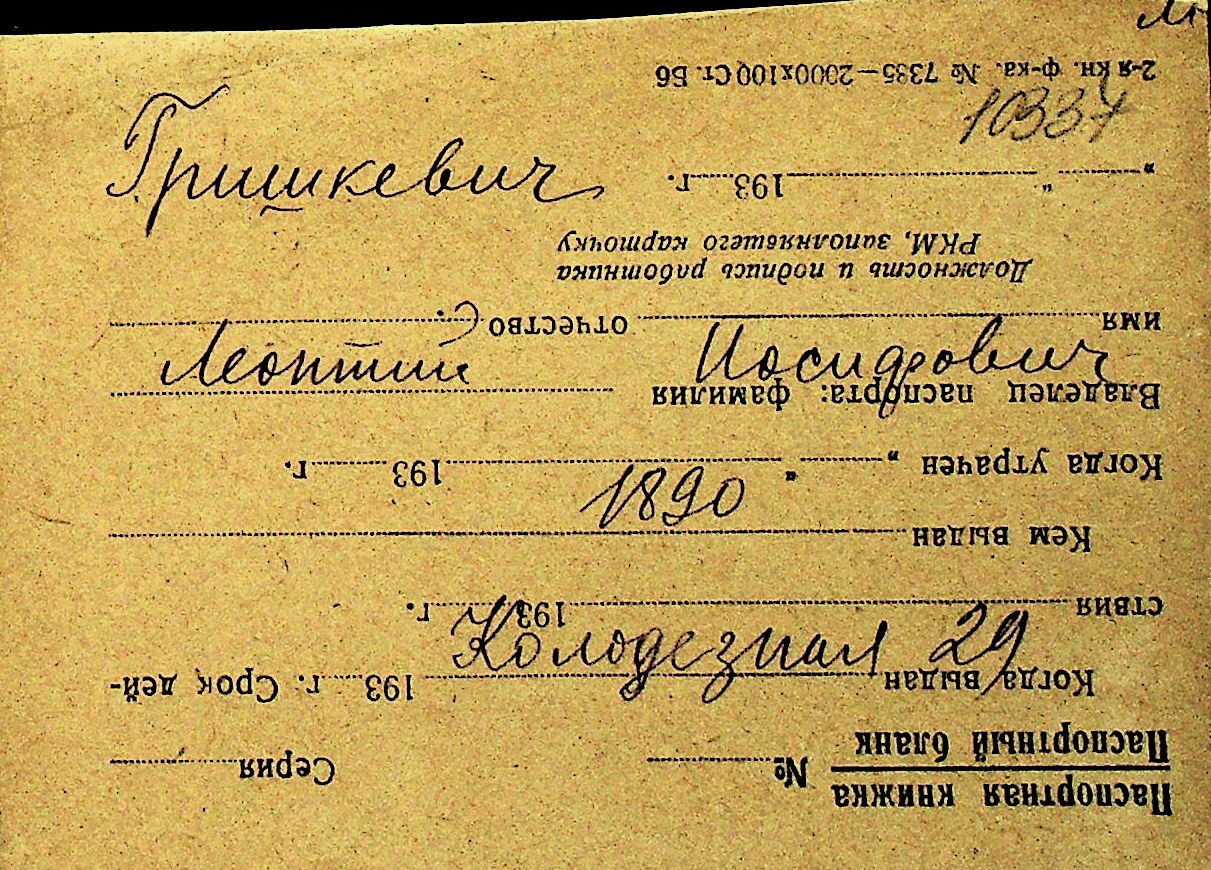 Гришкевич
10337
Леонтий Иосифович
1890
Колодезная 29
Паспортная книжка
Паспортный бланк
№ Серия
Когда выдан 193 г. Срок дей-
ствия 193 г.
Кем выдан
Когда утрачен „ “ 193 г.
Владелец паспорта: фамилия
имя отчество
Должность и подпись работника
РКМ, заполнявшего карточку
„ “ 193 г.
2-я кн. ф-ка. № 7385—2000х100 Ст. Б6